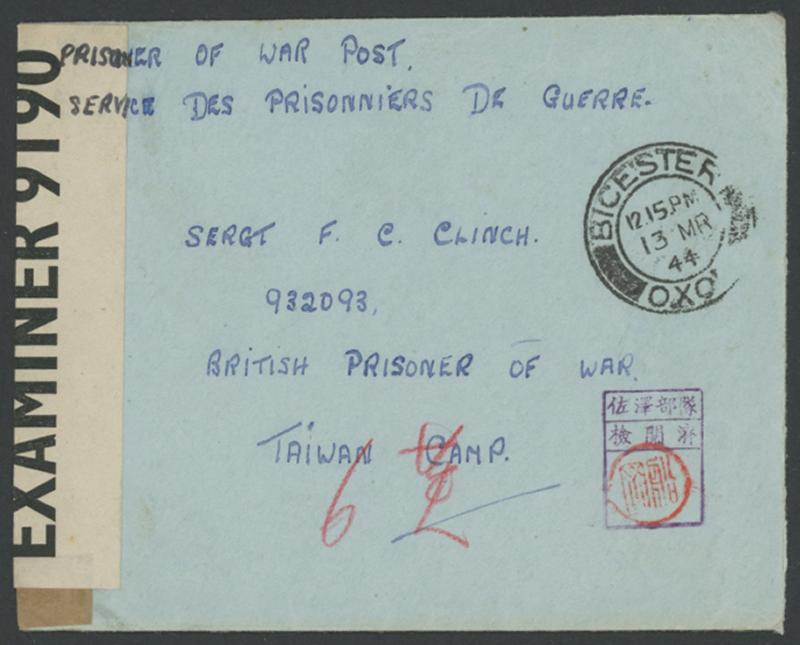 EXAMINER 9190
PRISONER OF WAR POST.
SERVICE DES PRISONNIERS DE GUERRE.
BICESTER
12.15 PM
13 MR
44
OXO
SERGT F. C. CLINCH.
932093,
BRITISH PRISONER OF WAR.
TAIWAN CAMP.
6
佐澤部隊
檢閲濟